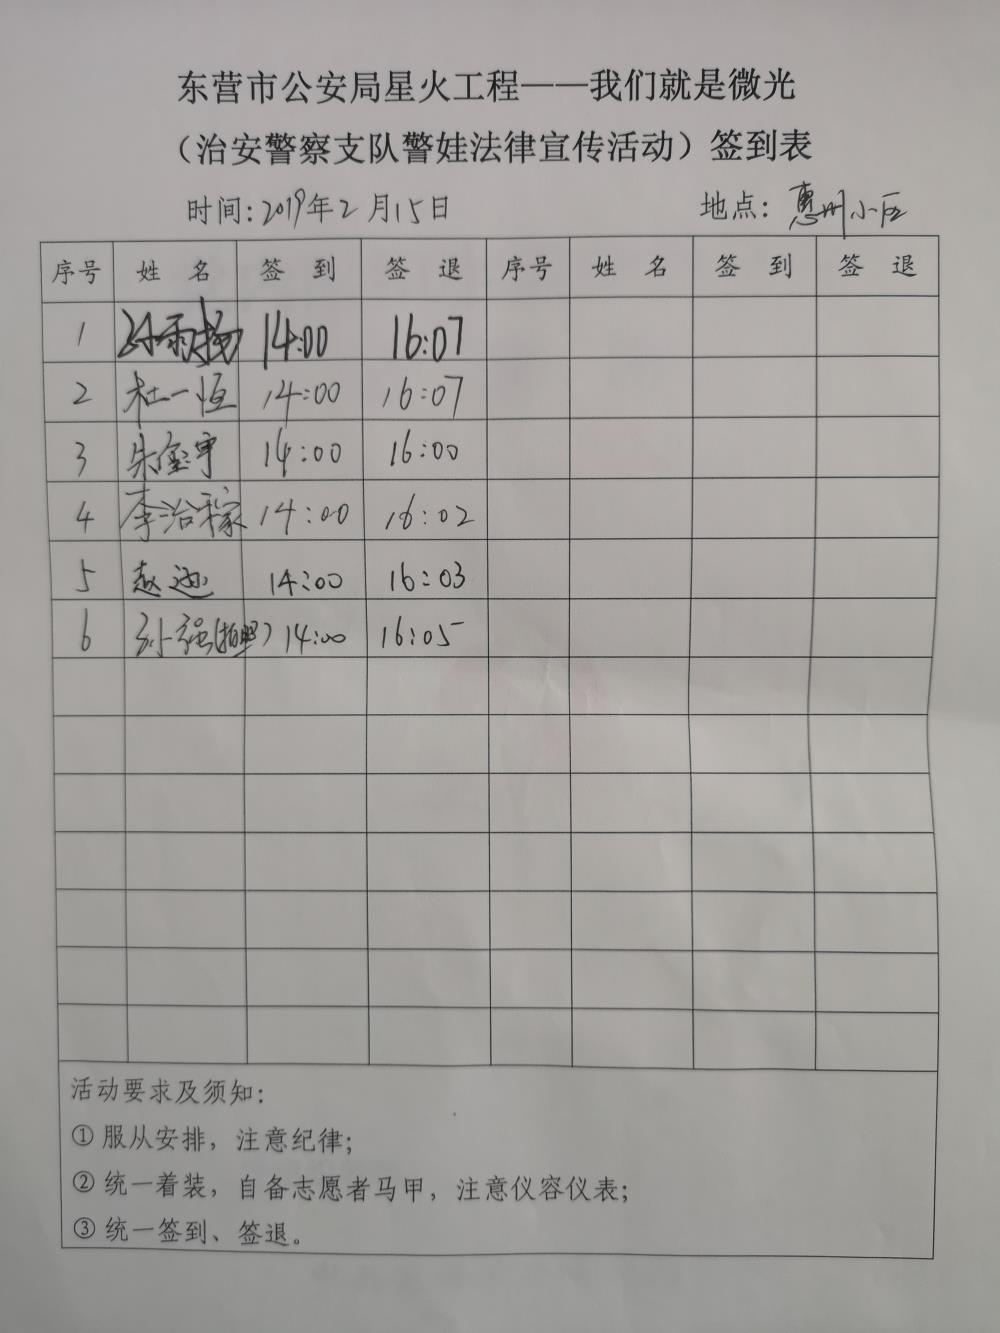 东营市公安局星火工程——我们就是微光
（治安警察支队警娃法律宣传活动）签到表
时间：2019年2月15日 地点：惠州小区
序号 姓 名 签 到 签 退 序号 姓 名 签 到 签 退
1 孙雨扬 14:00 16:07
2 杜一恒 14:00 16:07
3 朱 宇 14:00 16:00
4 李治稼 14:00 16:02
5 赵 14:00 16:03
6 孙强(拍照) 14:00 16:05
活动要求及须知：
① 服从安排，注意纪律；
② 统一着装，自备志愿者马甲，注意仪容仪表；
③ 统一签到、签退。